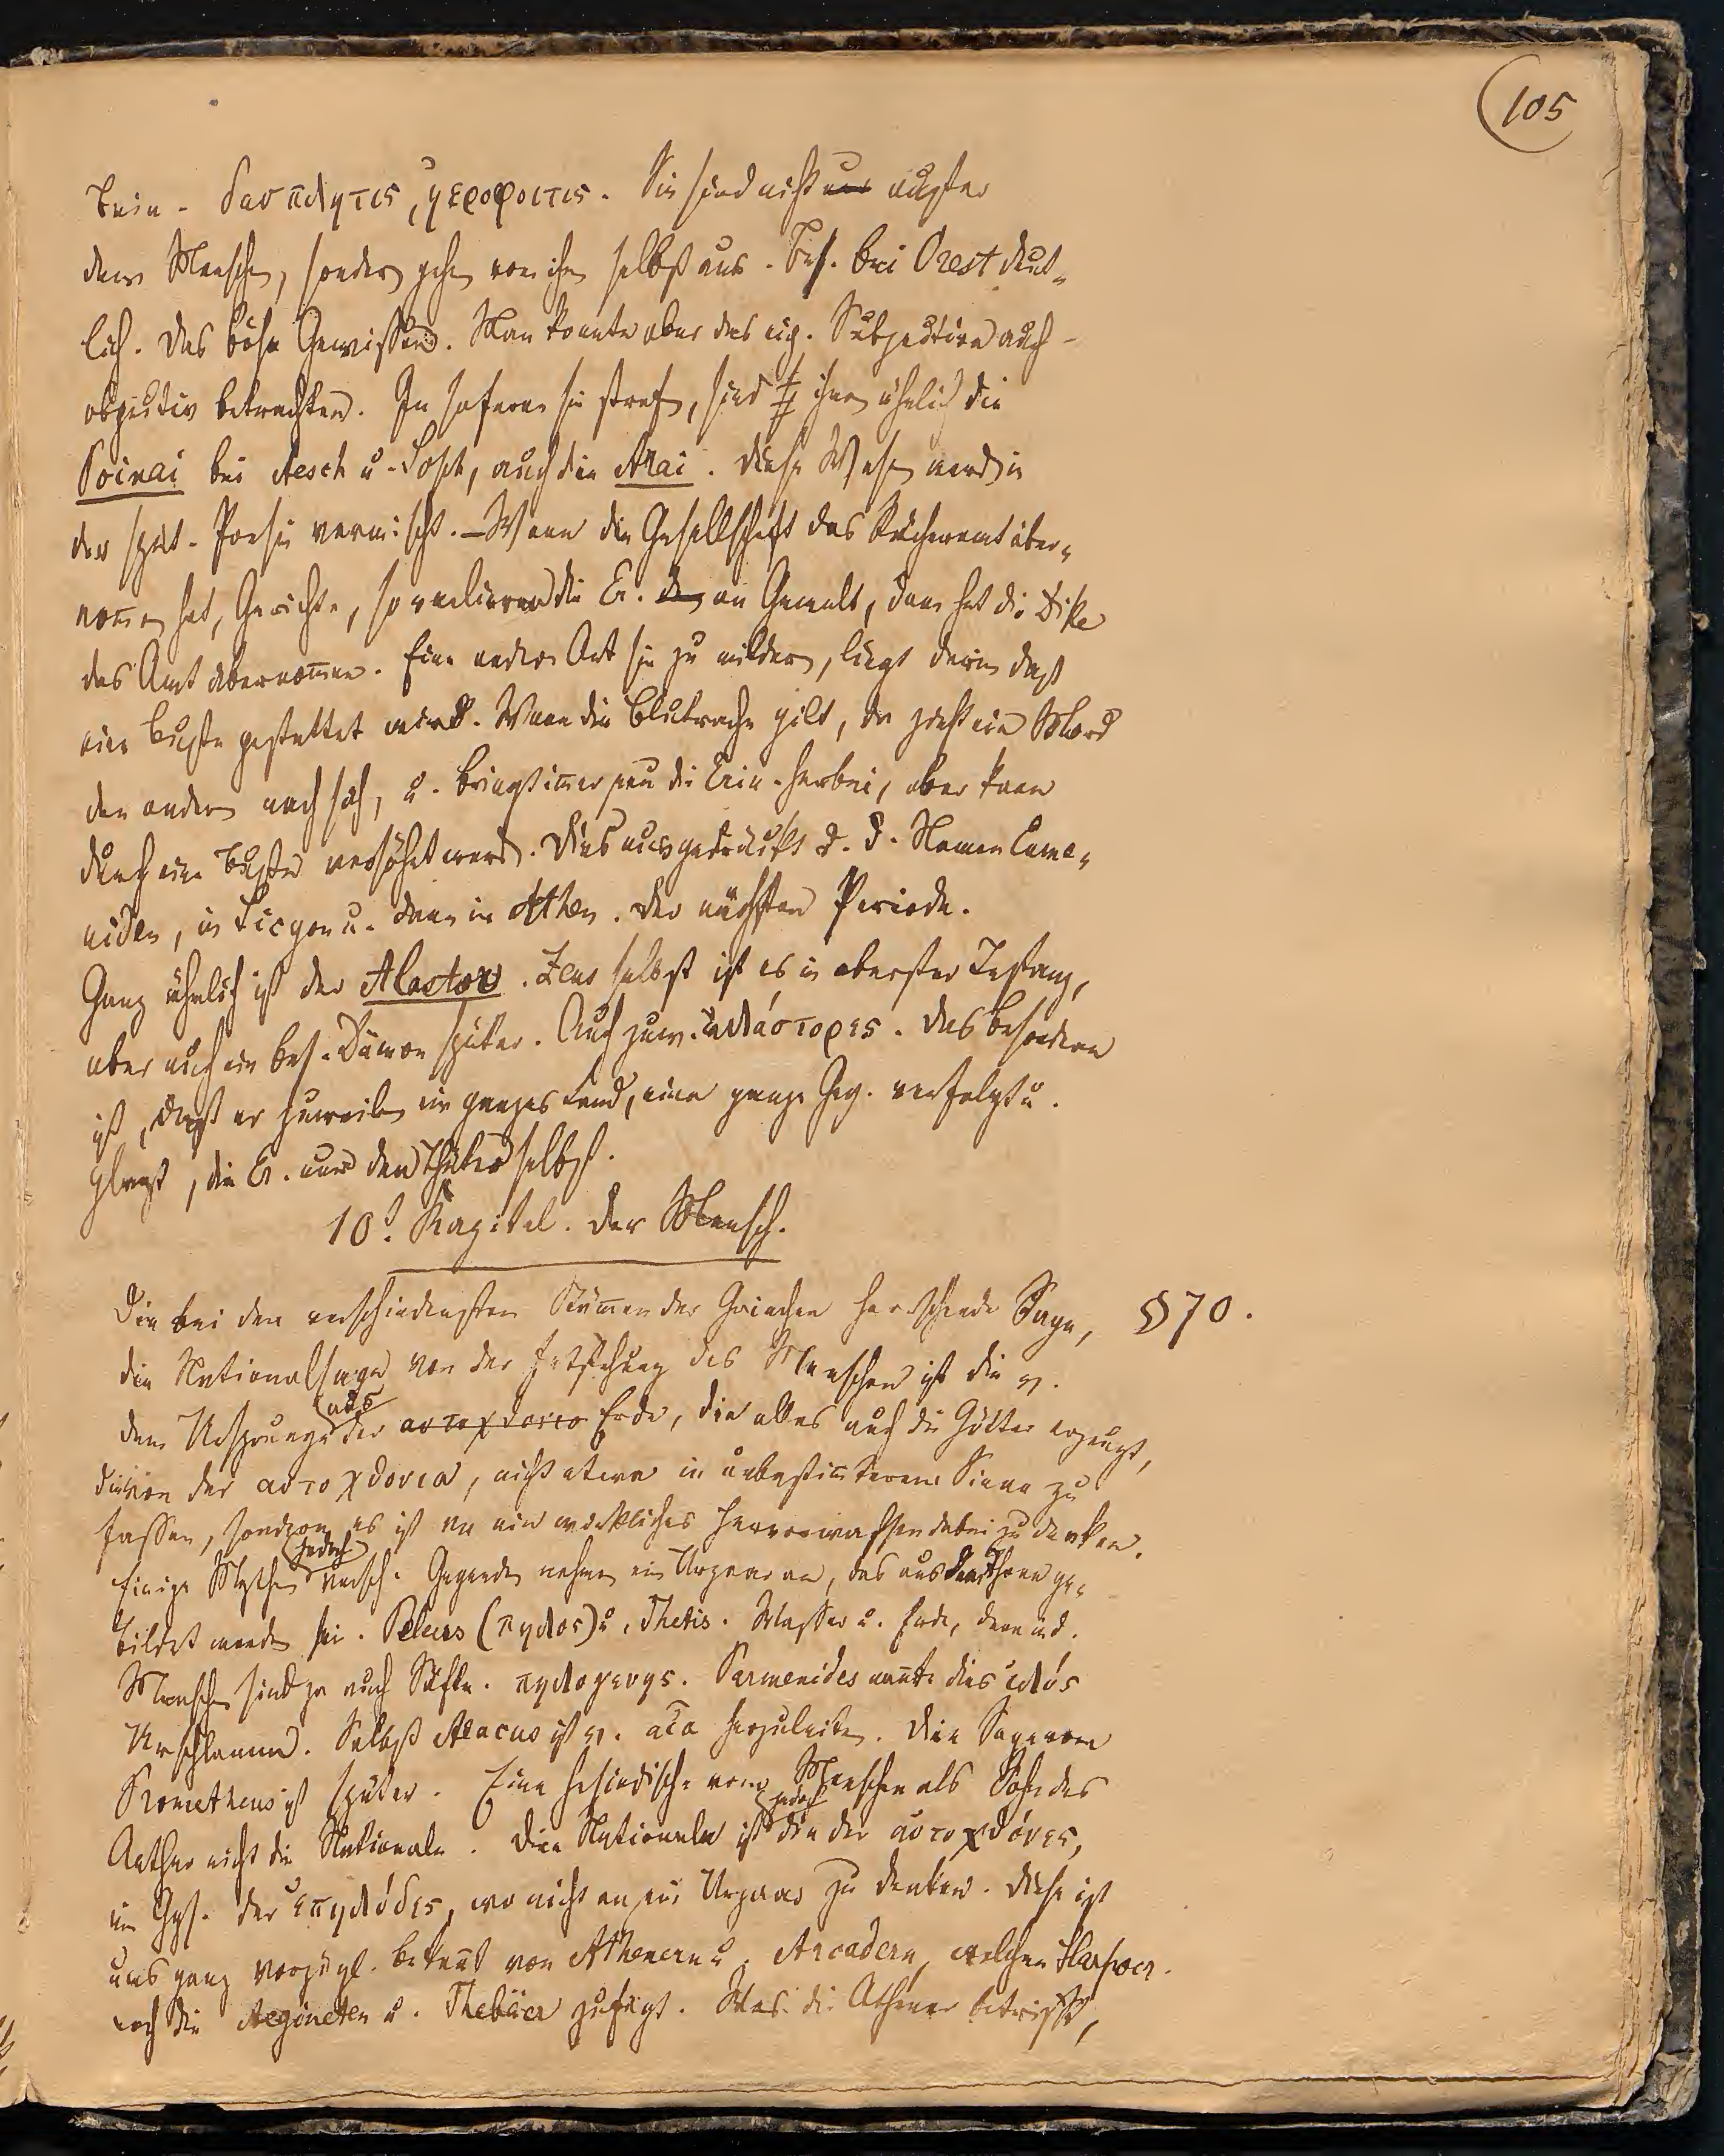 105
Erin. δασπλητις, ηεροφοιτις. Sie sind nicht außer
dem Menschen, sondern gehen von ihm selbst aus. Bes. bei Orest deut-
lich. Das böse Gewissen. Man konnte aber das eig. Subjective auch
objectiv betrachten. In sofern sie strafen, sind ihnen ähnlich die
Poinai bei Aesch u. Soph, auch die Arai. Diese Wesen werden in
der spät. Poesie vermischt. – Wenn die Gesellschaft das Rächeramt über-
nomen hat, Gerichte, so verlieren die Er. an Gewalt, dann hat die Dike
das Amt übernomen. Eine andere Art sie zu mildern, liegt darin daß
eine Buße gestattet wird. Wenn die Blutrache gilt, da zieht ein Mord
den andern nach sich, u. bringt immer neu die Erin. herbei, aber kann
durch eine Buße versöhnt werd. Dies ausgedrückt d. d. Namen Eume-
niden, in Sicyon u. dann in Athen. Der nächsten Periode.
Ganz ähnlich ist der Alastor. Zeus selbst ist es in oberster Instanz,
aber auch ein bes. Dämon später. Auch zuw. ἀλάστορες. Das besondere
ist, daß er zuweilen ein ganzes Land, eine ganze Geg. verfolgt u.
plagt, die Er. nur den Thäter selbst.
10. Kapitel. Der Mensch.
Die bei den verschiedensten Stämmen der Griechen herrschende Sage, § 70.
die Nationalsage von der Entstehung des Menschen ist die v.
dem Ursprunge aus der αυτοχθονια Erde, die alles auch die Götter erzeugt,
die von der αυτοχθονια, nicht etwa in unbestimterem Sinne zu
fassen, sondern es ist an ein wirkliches Hervorwachsen dabei zu denken.
Einige Mythen jedoch versch. Gegenden nehmen ein Urpaar an, das aus dem Thone ge-
bildet worden sei. Peleus (πηλος) u. Thetis. Wasser u. Erde, denn d.
Menschen sind ja auch Säfte. πηλογενης. Parmenides nannte dies ἰλύς
Urschlamm. Selbst Aeacus ist v. αἶα herzuleiten. Die Sage vom
Prometheus ist später. Eine hesiodische vom Menschen als Sohn des
Aether nicht die Nationale. Die Nationale ist jedoch die der αὐτοχθόνες,
im Ggs. der ἐπηλύδες, wo nicht an ein Urpaar zu denken. Diese ist
uns ganz vorzügl. bekannt von Athenern u. Arcadern, welchen Harpocr.
noch die Aegineten u. Thebäer zufügt. Was die Athener betrifft,